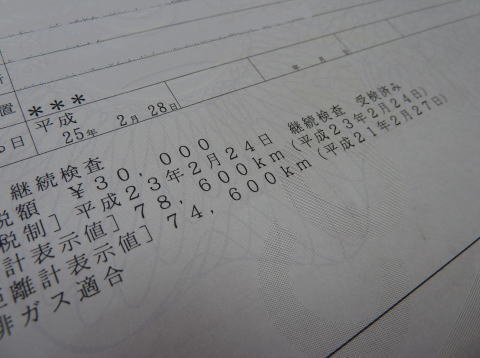 置 ***
日 平成
25年 2月 28日
継続検査
税額 ¥30,000
税制] 平成23年2月24日 継続検査 受検済み
計表示値] 78,600km (平成23年2月24日)
距離計表示値] 74,600km (平成21年2月27日)
非ガス適合